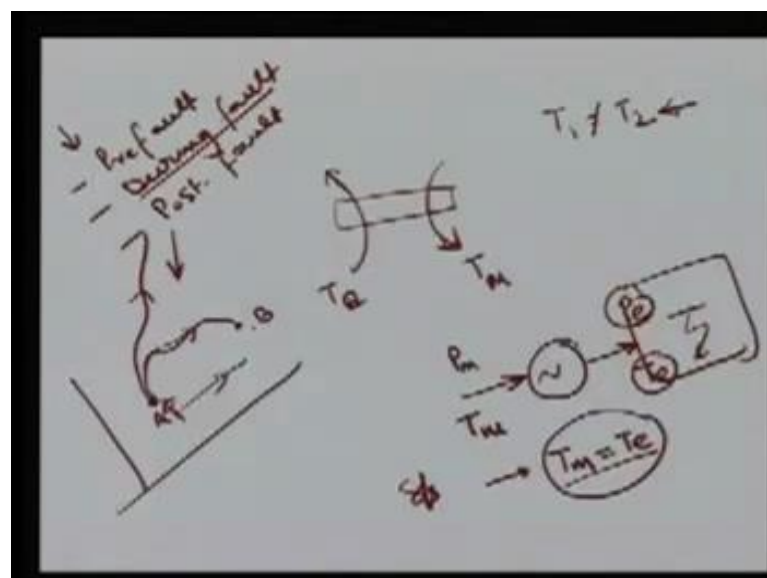 Prefault
During fault
Post. fault
T₁ ≠ T₂ ←
Te
Tm
.B
A
Pm
Tm
~
Pe
Te
Tm = Te